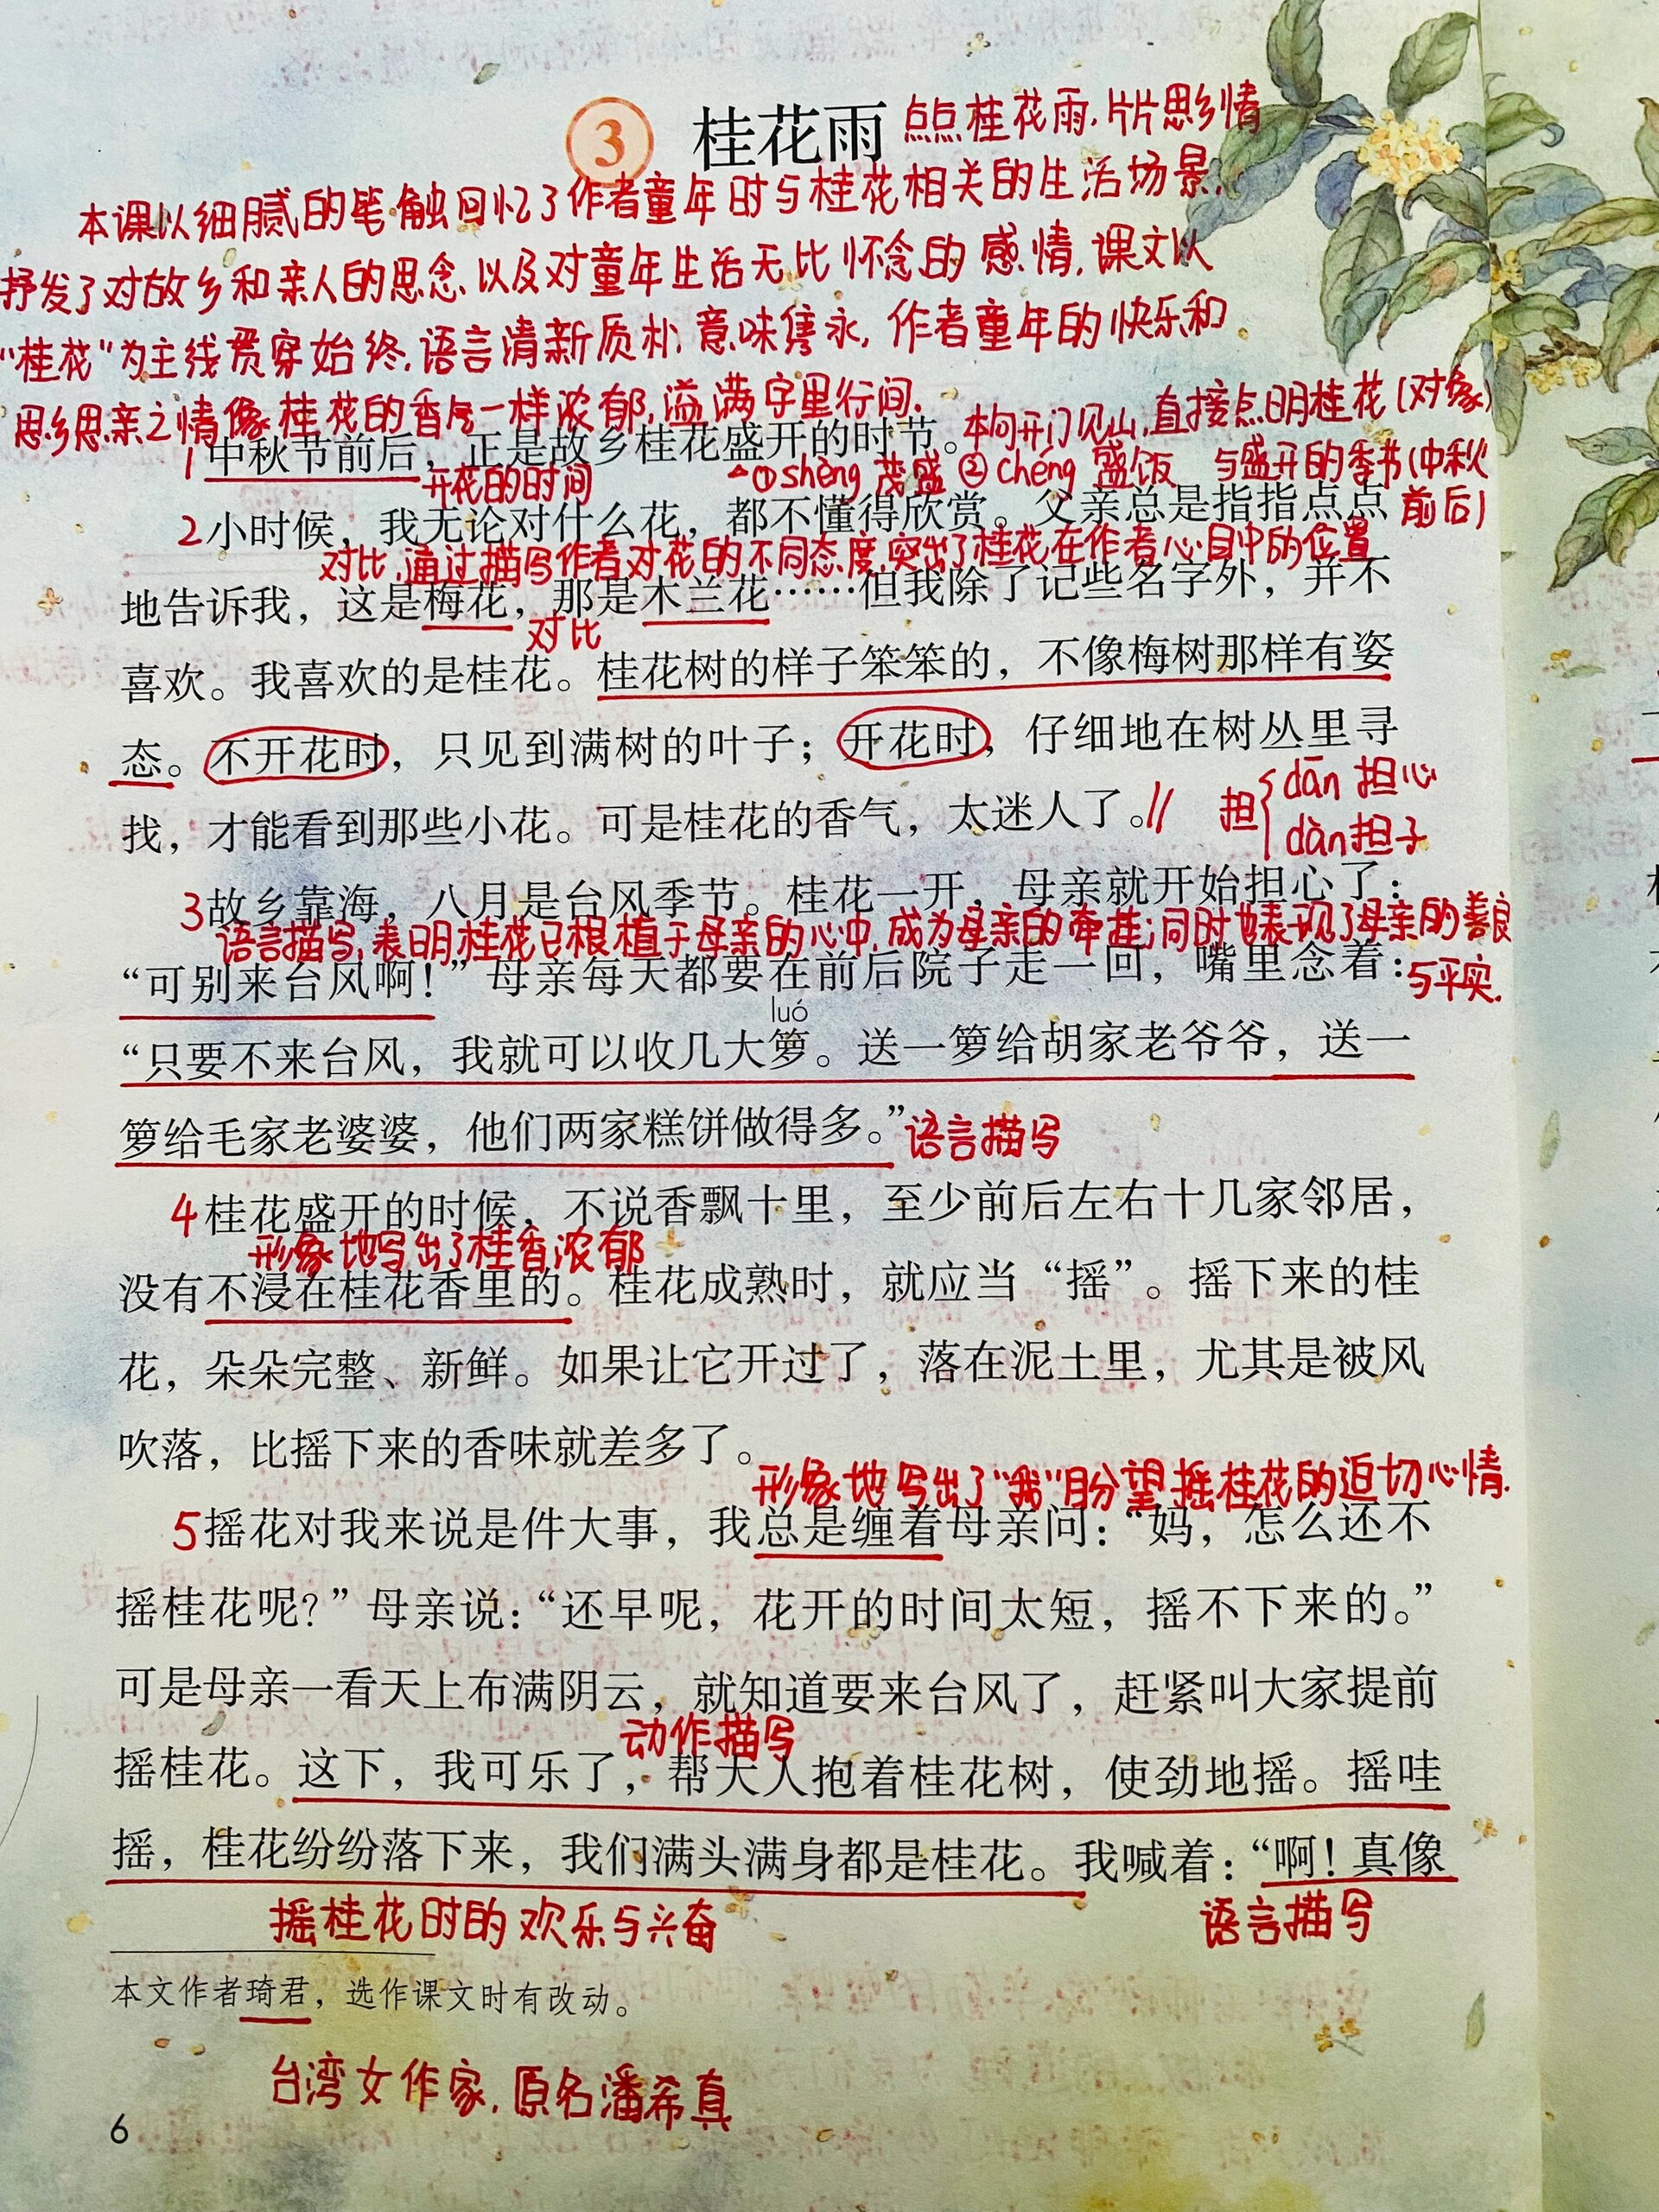 3 桂花雨 点点桂花雨,片片思乡情
本课以细腻的笔触回忆了作者童年时与桂花相关的生活场景,
抒发了对故乡和亲人的思念,以及对童年生活无比怀念的感情,课文以
“桂花”为主线贯穿始终,语言清新质朴,意味隽永,作者童年的快乐和
思乡思亲之情像桂花的香气一样浓郁,溢满字里行间.
本句开门见山,直接点明桂花(对象)
1 中秋节前后,正是故乡桂花盛开的时节。
开花的时间 ①shèng 茂盛 ②chéng 盛饭 与盛开的季节(中秋
前后)
2 小时候,我无论对什么花,都不懂得欣赏。父亲总是指指点点
对比,通过描写作者对花的不同态度,突出了桂花在作者心目中的位置
地告诉我,这是梅花,那是木兰花……但我除了记些名字外,并不
对比
喜欢。我喜欢的是桂花。桂花树的样子笨笨的,不像梅树那样有姿
态。不开花时,只见到满树的叶子;开花时,仔细地在树丛里寻
找,才能看到那些小花。可是桂花的香气,太迷人了。//
担 dān 担心
dàn 担子
3 故乡靠海,八月是台风季节。桂花一开,母亲就开始担心了:
语言描写,表明桂花已根植于母亲的心中,成为母亲的牵挂;同时也表现了母亲的善良
与平实.
“可别来台风啊!”母亲每天都要在前后院子走一回,嘴里念着:
luó
“只要不来台风,我就可以收几大箩。送一箩给胡家老爷爷,送一
箩给毛家老婆婆,他们两家糕饼做得多。”语言描写
4 桂花盛开的时候,不说香飘十里,至少前后左右十几家邻居,
形象地写出了桂香浓郁
没有不浸在桂花香里的。桂花成熟时,就应当“摇”。摇下来的桂
花,朵朵完整、新鲜。如果让它开过了,落在泥土里,尤其是被风
吹落,比摇下来的香味就差多了。
形象地写出了“我”盼望摇桂花的迫切心情.
5 摇花对我来说是件大事,我总是缠着母亲问:“妈,怎么还不
摇桂花呢?”母亲说:“还早呢,花开的时间太短,摇不下来的。”
可是母亲一看天上布满阴云,就知道要来台风了,赶紧叫大家提前
动作描写
摇桂花。这下,我可乐了,帮大人抱着桂花树,使劲地摇。摇哇
摇,桂花纷纷落下来,我们满头满身都是桂花。我喊着:“啊!真像
摇桂花时的欢乐与兴奋 语言描写
本文作者琦君,选作课文时有改动。
台湾女作家,原名潘希真
6